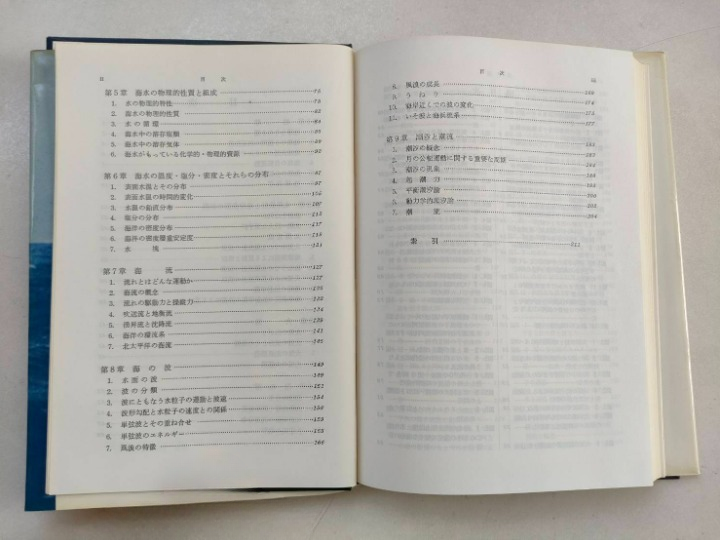 目次
第5章 海水の物理的性質と組成 75
1. 水の物理的特性 75
2. 海水の物理的性質
3. 水の循環
4. 海水中の溶存塩類
5. 海水中の溶存気体
6. 海水がもっている化学的・物理的資源 92
第6章 海水の温度・塩分・密度とそれらの分布 97
1. 表面水温とその分布 97
2. 表面水温の時間的変化
3. 水温の鉛直分布 107
4. 塩分の分布
5. 海洋の密度分布
6. 海洋の密度層重安定度
7. 水塊 121
第7章 海流 127
1. 流れとはどんな運動か 127
2. 海流の概念
3. 流れの駆動力と接触力
4. 吹送流と地衡流
5. 湧昇流と沈降流
6. 海洋の環流系 141
7. 北太平洋の海流 145
第8章 海の波 149
1. 水面の波 149
2. 波の分類 151
3. 波にともなう水粒子の運動と波速 154
4. 波形勾配と水粒子の速度との関係 156
5. 単弦波とその重ね合せ 158
6. 単弦波のエネルギー
7. 風波の特徴
目次
8. 風波の成長
9. うねり
10. 海岸近くでの波の変化 176
11. いそ波と海浜流系 177
第9章 潮汐と潮流
1. 潮汐の概念
2. 月の公転運動に関する重要な周期
3. 潮汐の現象
4. 起潮力
5. 平衡潮汐論
6. 動力学的潮汐論
7. 潮流
索引